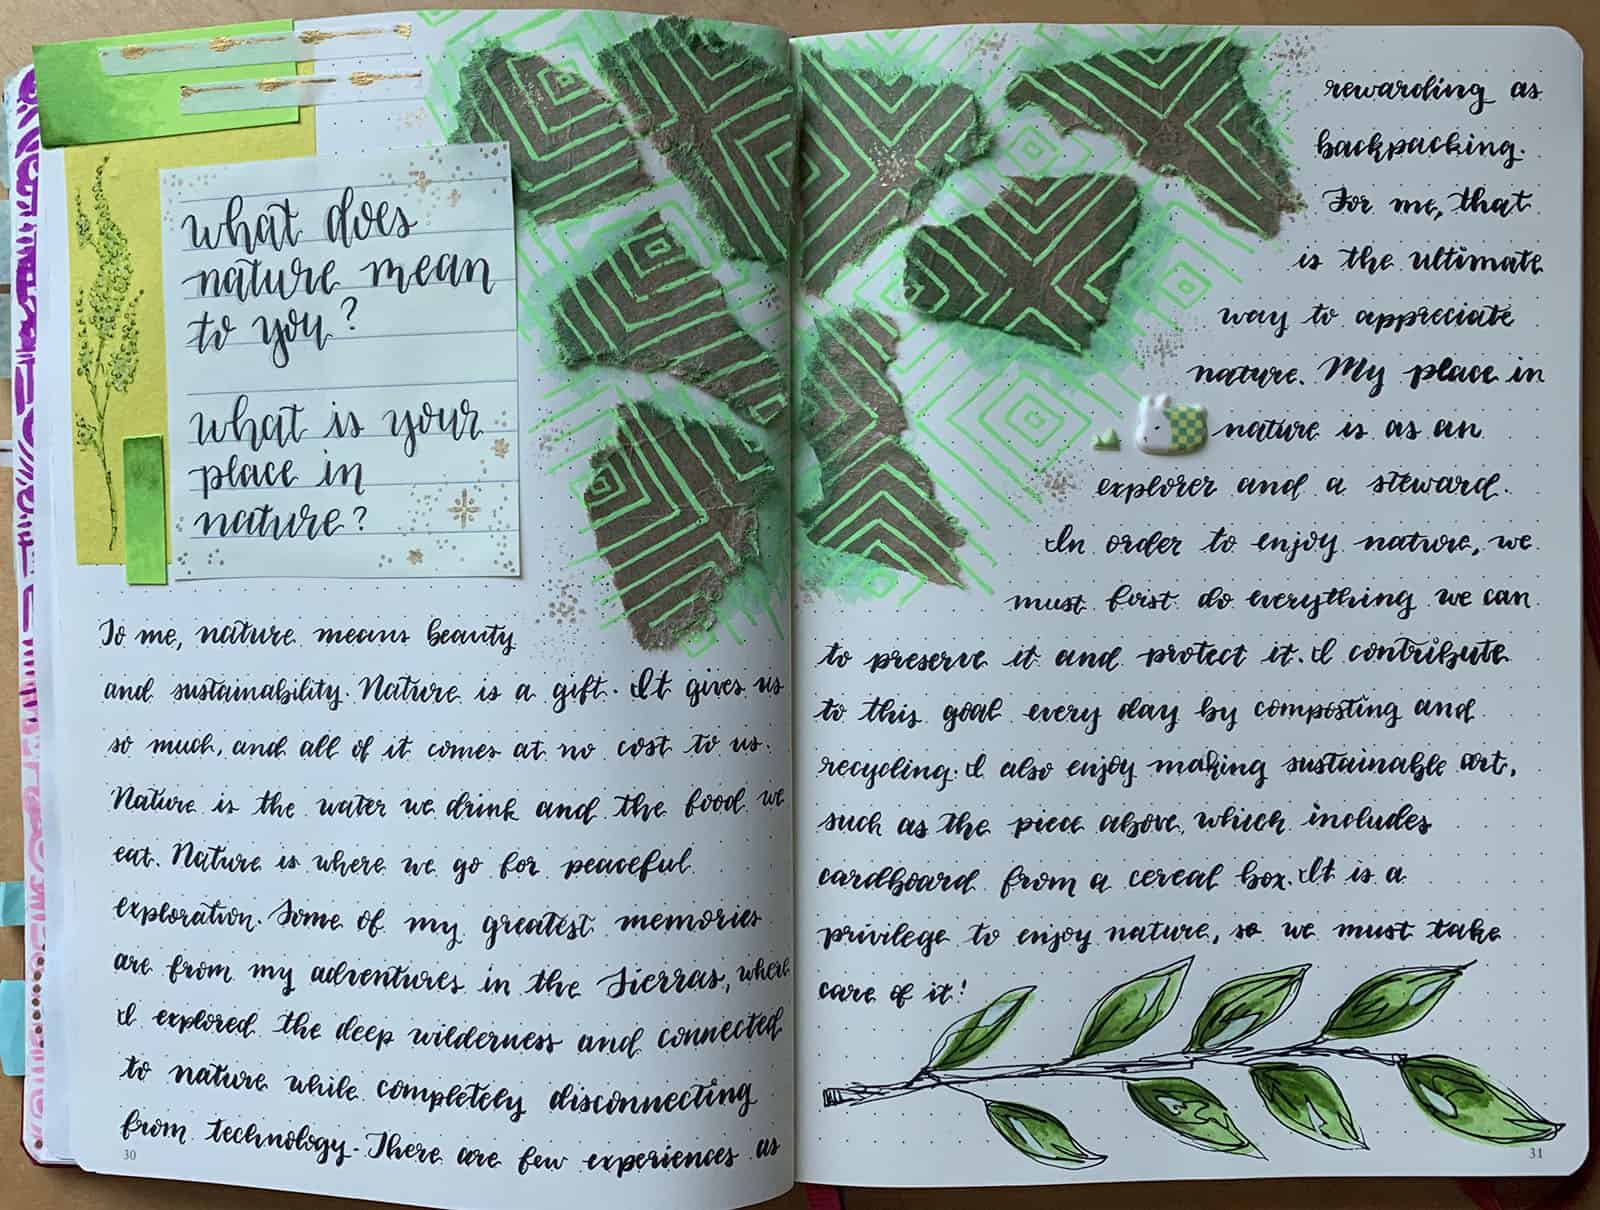 what does
nature mean
to you?
what is your
place in
nature?
To me, nature means beauty
and sustainability. Nature is a gift. It gives us
so much, and all of it comes at no cost to us.
Nature is the water we drink and the food we
eat. Nature is where we go for peaceful
exploration. Some of my greatest memories
are from my adventures in the Sierras, where
I explored the deep wilderness and connected
to nature while completely disconnecting
from technology. There are few experiences as
30
rewarding as
backpacking.
For me, that
is the ultimate
way to appreciate
nature. My place in
nature is as an
explorer and a steward.
In order to enjoy nature, we
must first do everything we can
to preserve it and protect it. I contribute
to this goal every day by composting and
recycling. I also enjoy making sustainable art,
such as the piece above, which includes
cardboard from a cereal box. It is a
privilege to enjoy nature, so we must take
care of it!
31